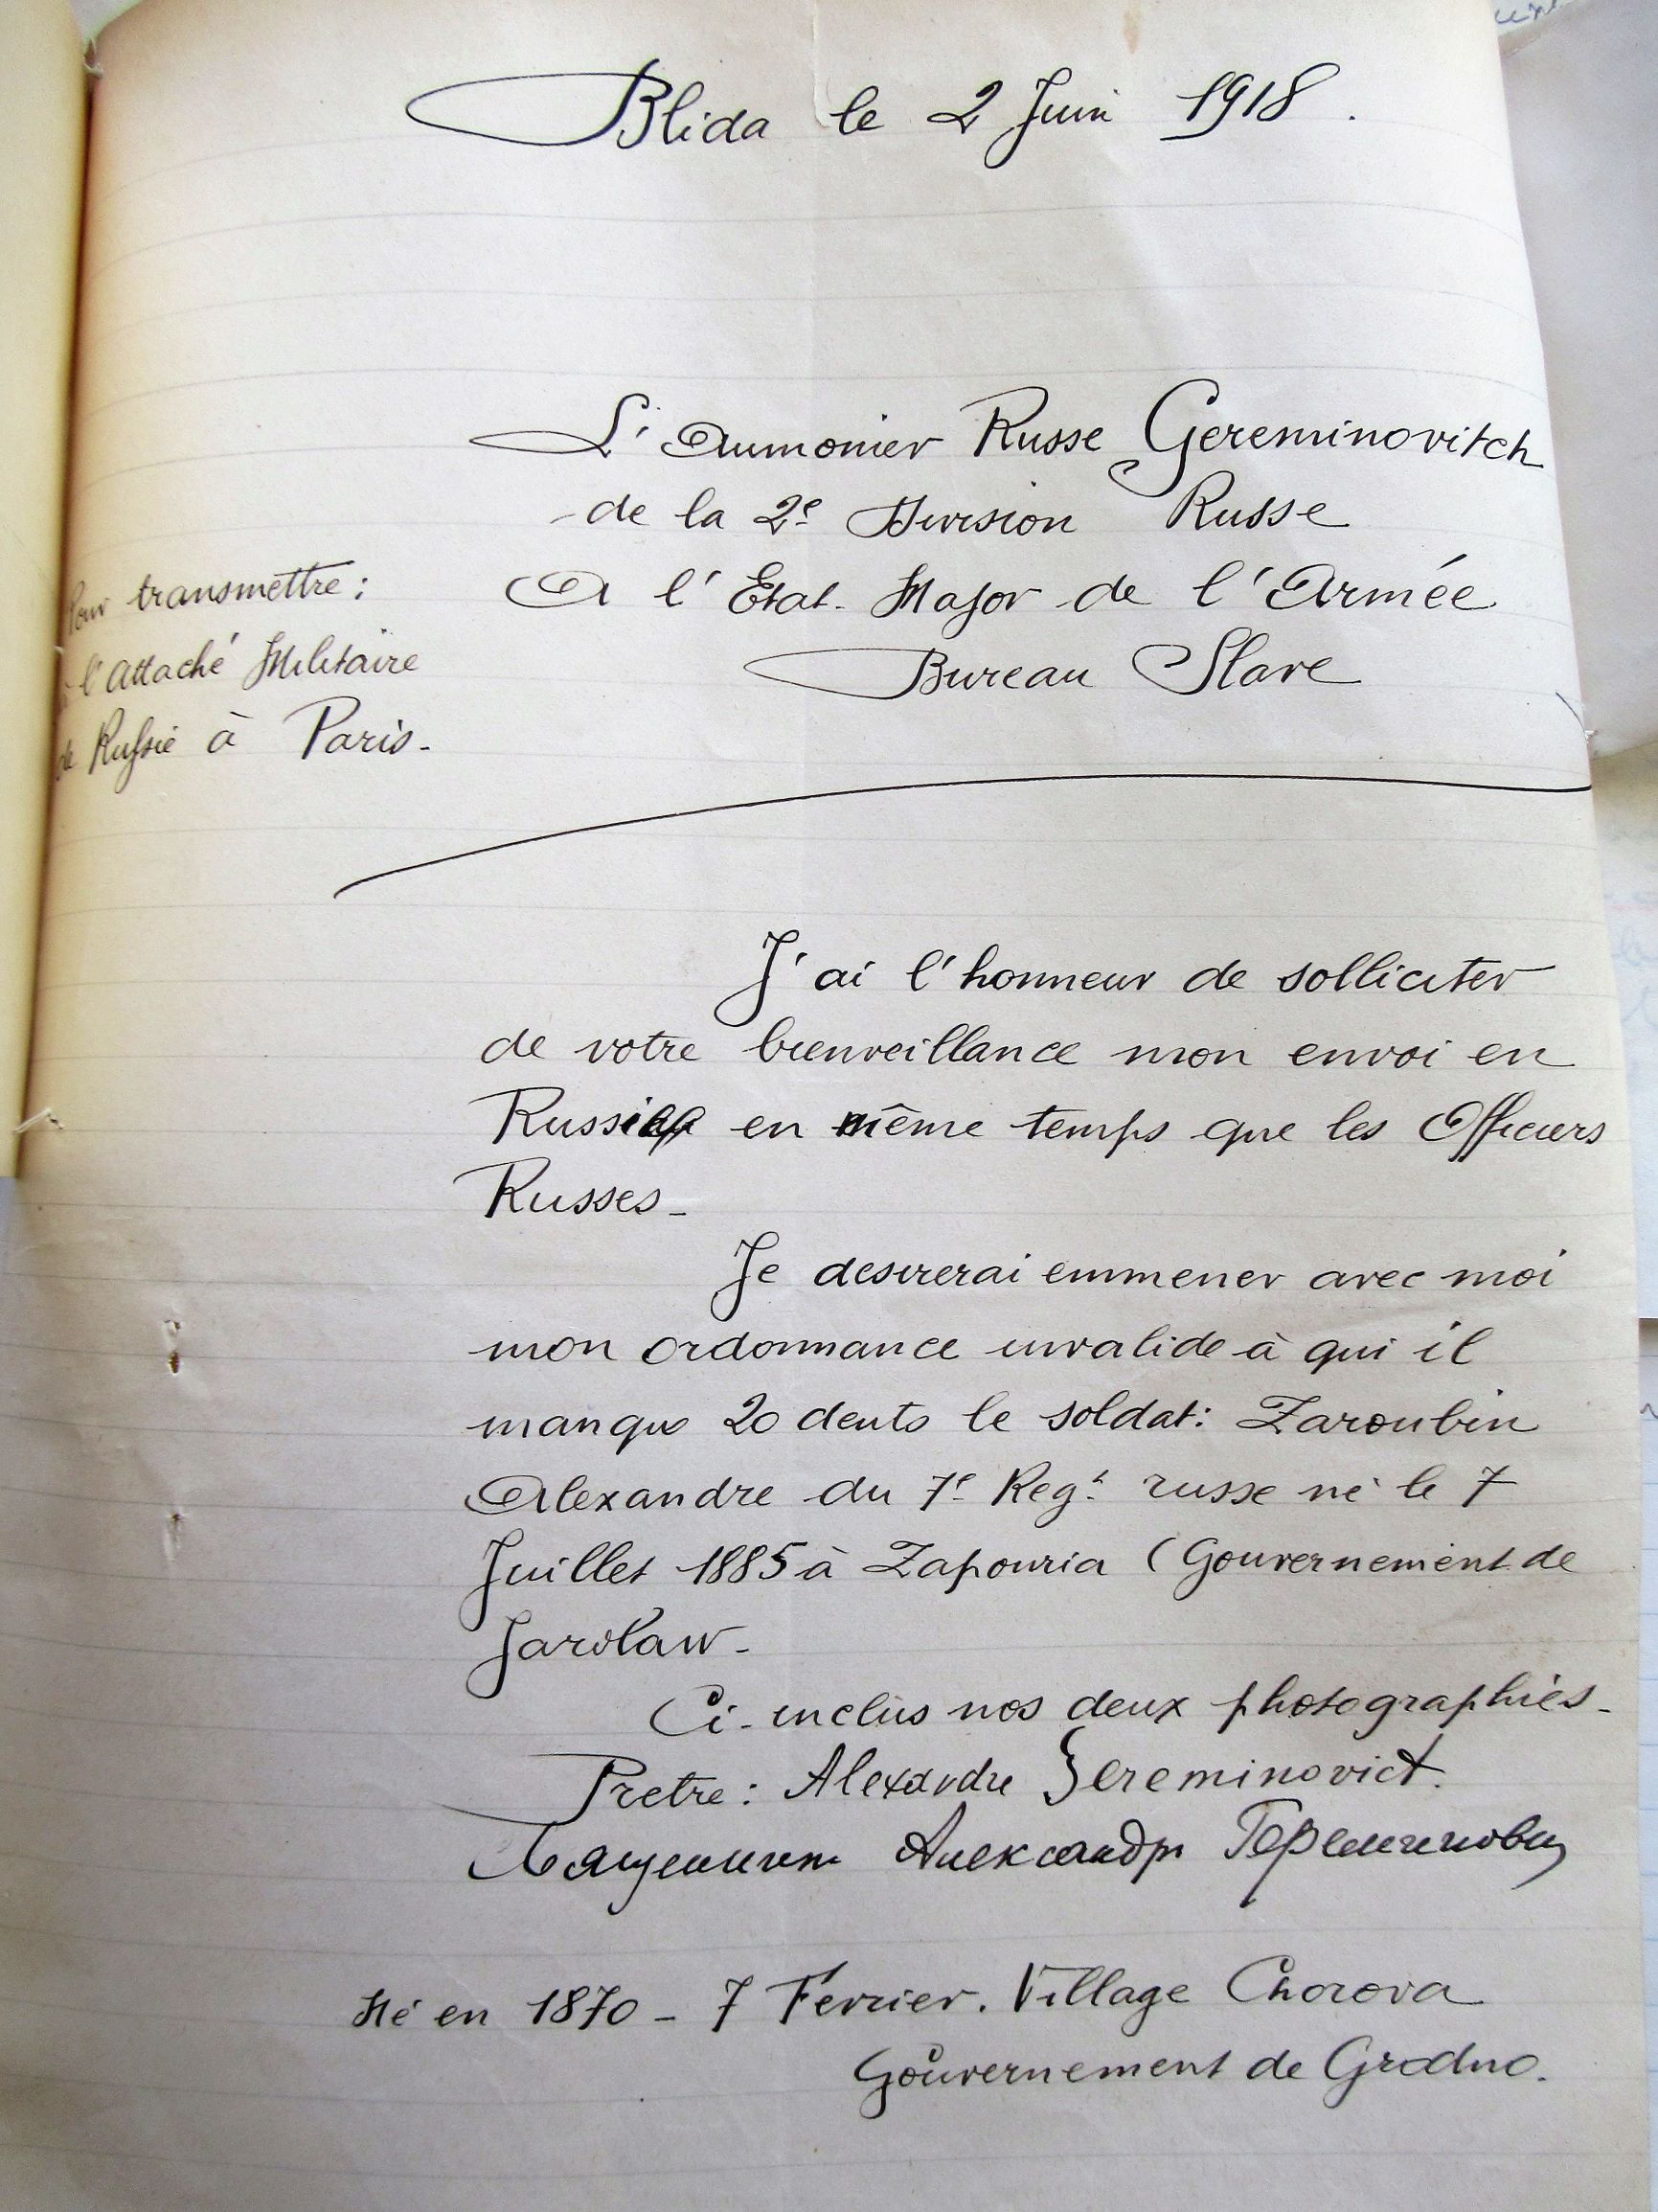 Blida le 2 Juin 1918.
L'Aumonier Russe Gereminovitch
de la 2e Division Russe
A l'Etat-Major de l'Armée
Bureau Slave
Pour transmettre:
à l'Attaché Militaire
de Russie à Paris-
J'ai l'honneur de solliciter
de votre bienveillance mon envoi en
Russie en même temps que les Officiers
Russes-
Je desirerai emmener avec moi
mon ordonnance invalide à qui il
manque 20 dents le soldat: Zaroubin
Alexandre du 7e Regt russe né le 7
Juillet 1885 à Zapouria (Gouvernement de
Jarolaw-
Ci-inclus nos deux photographies-
Pretre: Alexandre Jereminovict.
Священник Александр Гереминович
Né en 1870 - 7 Février. Village Chorova
Gouvernement de Grodno.